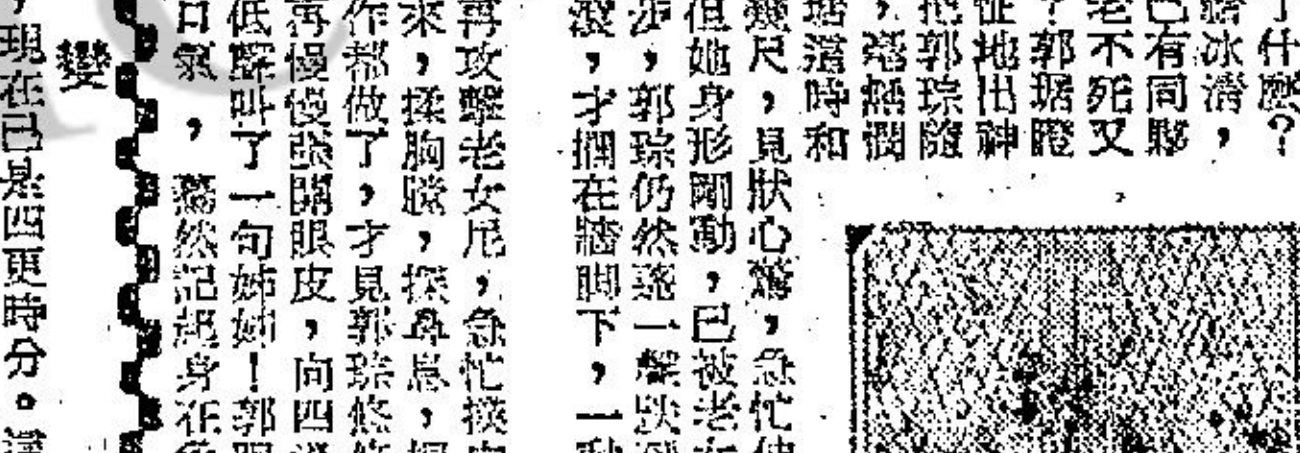 了什麼?
冰滑,
已有同夥
老不死又
?郭琚瞪
怔地出神
把郭琮隨
,毫無
琚這時和
幾尺,見狀心驚,急忙
但她身形剛動,已被老女
步,郭琮仍然一聲跌到
滾,才擱在牆脚下,一動
再攻擊老女尼,急忙撲
來,揉胸膛,探鼻息,
作都做了,才見郭琮悠
再慢慢張開眼皮,向四
低聲叫了一句姊姊!郭琚
口氣,驀然記起身在
變
,現在已是四更時分。